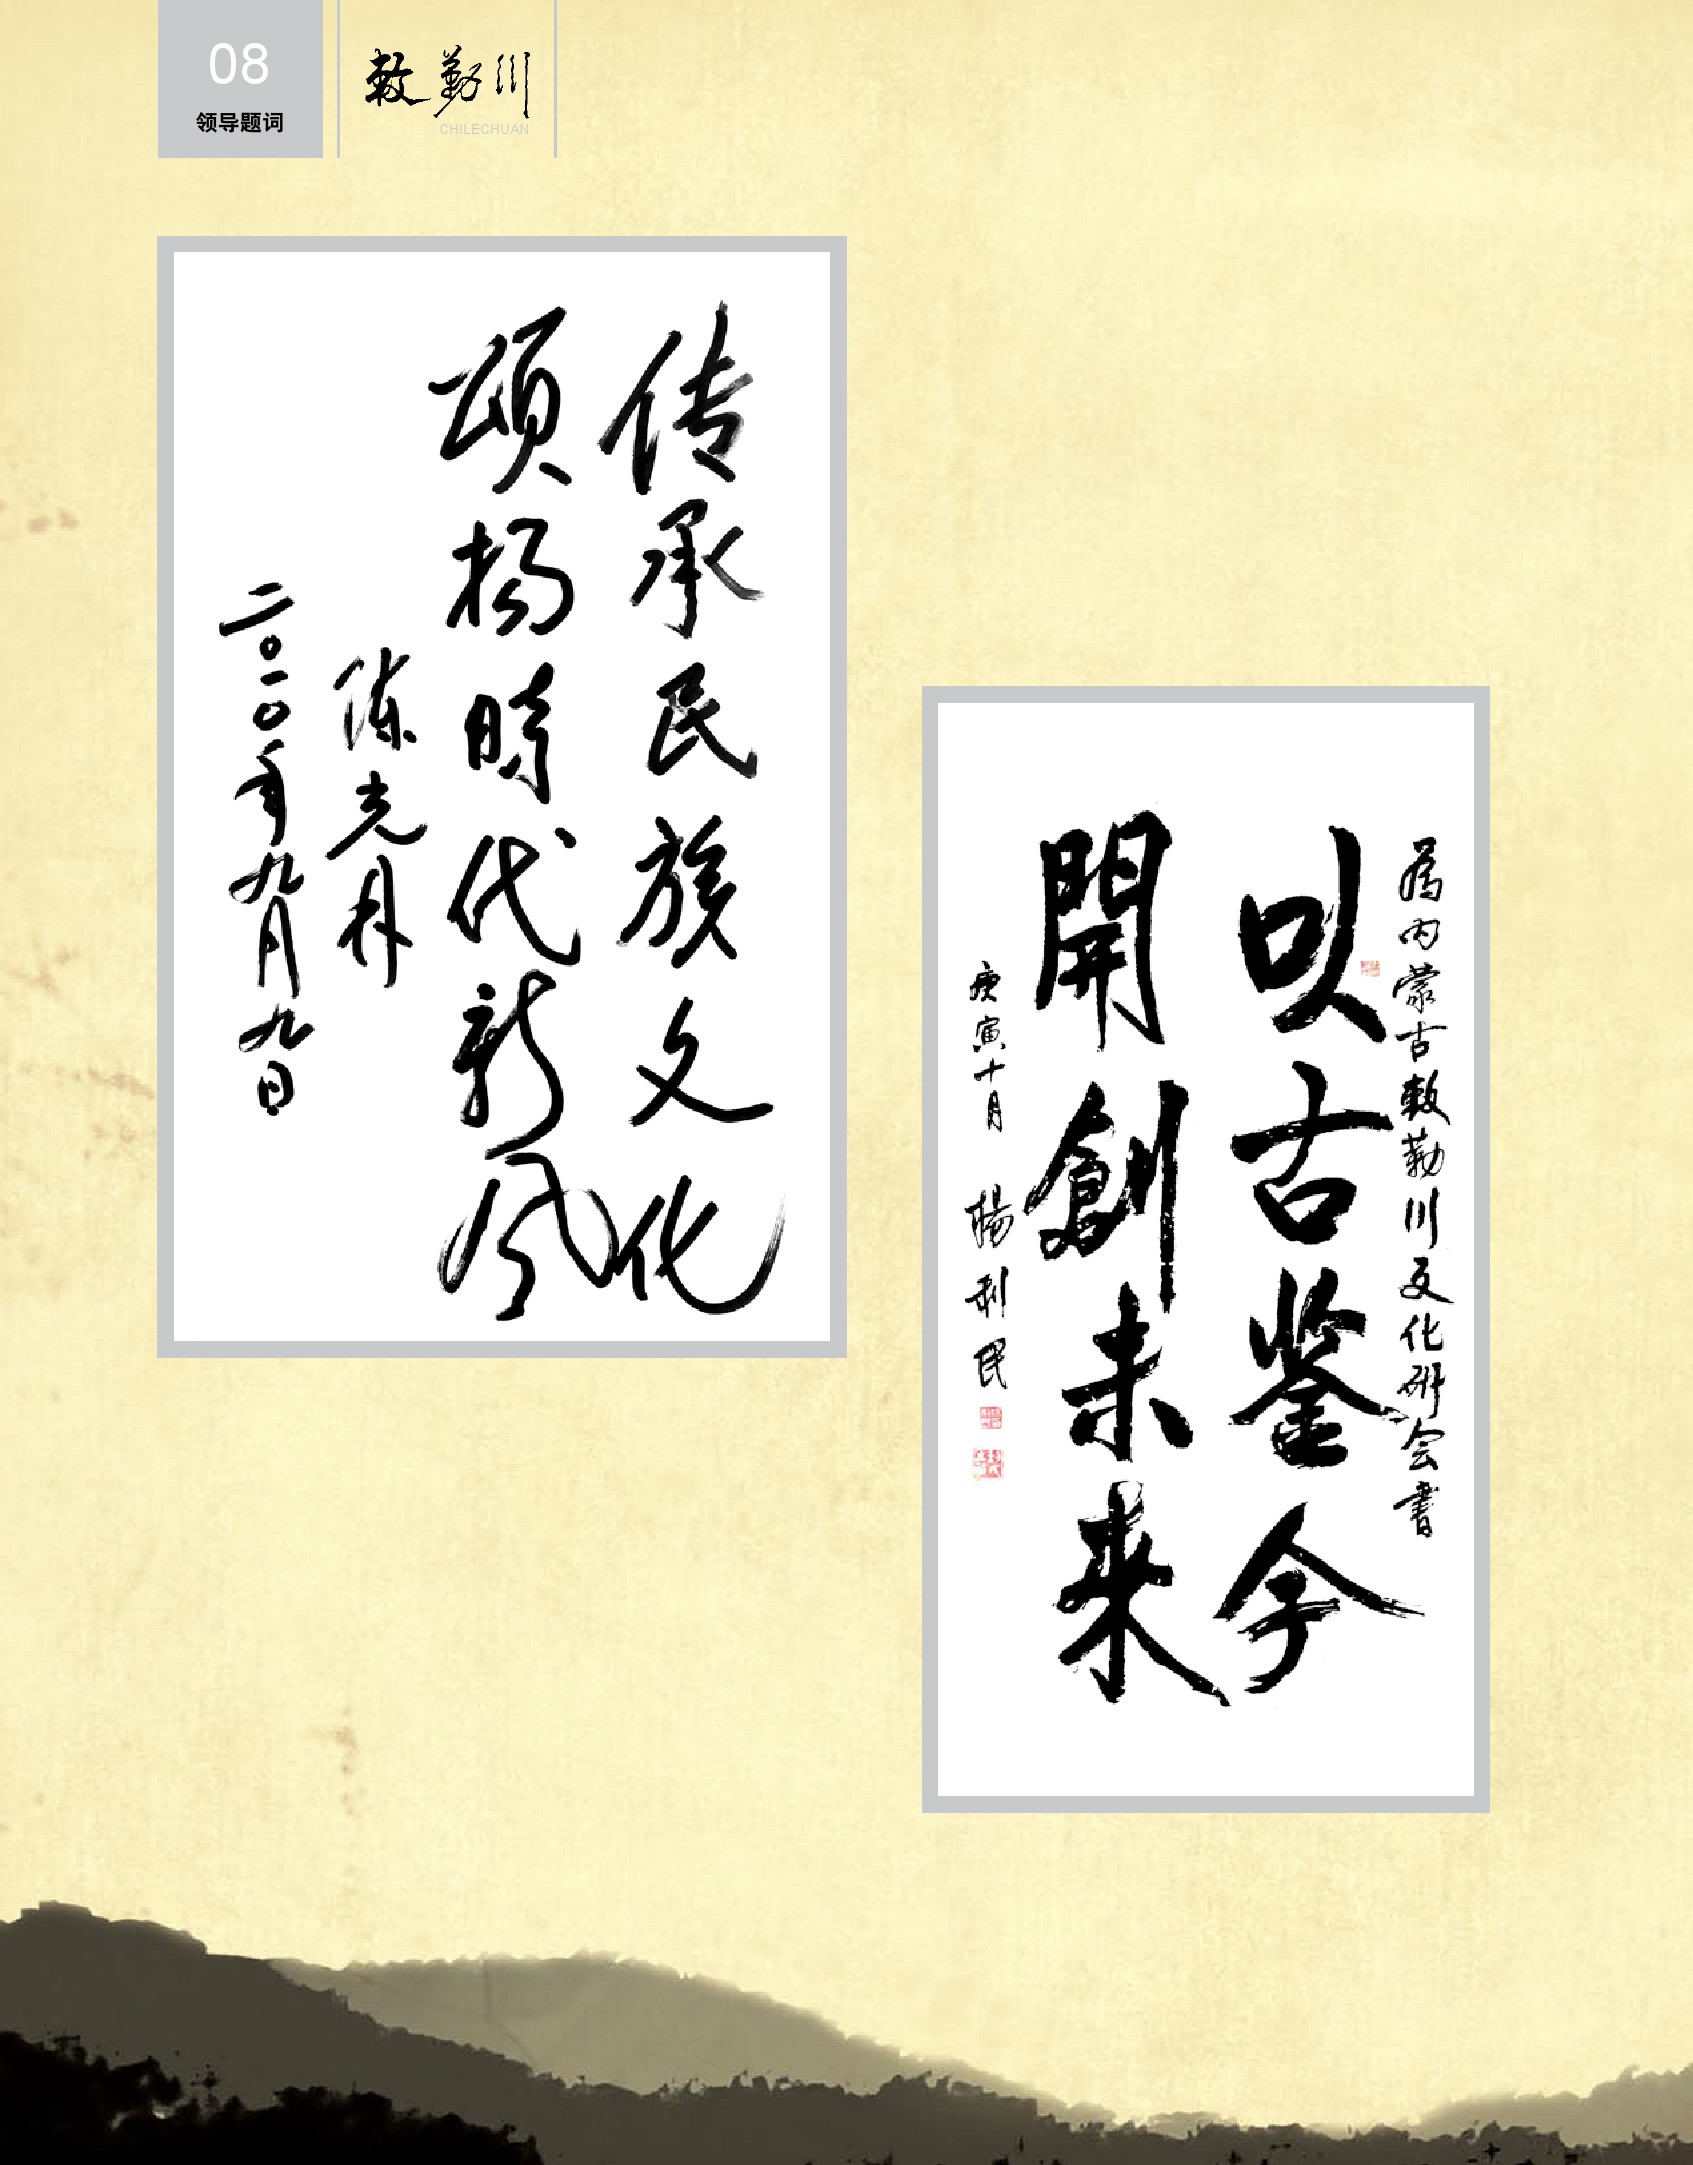 08
领导题词
敕勒川
CHILECHUAN
传承民族文化
颂扬時代新风
陈光林
二〇一〇年九月九日
為内蒙古敕勒川文化研会書
以古鉴今
開創未来
庚寅十月 楊利民